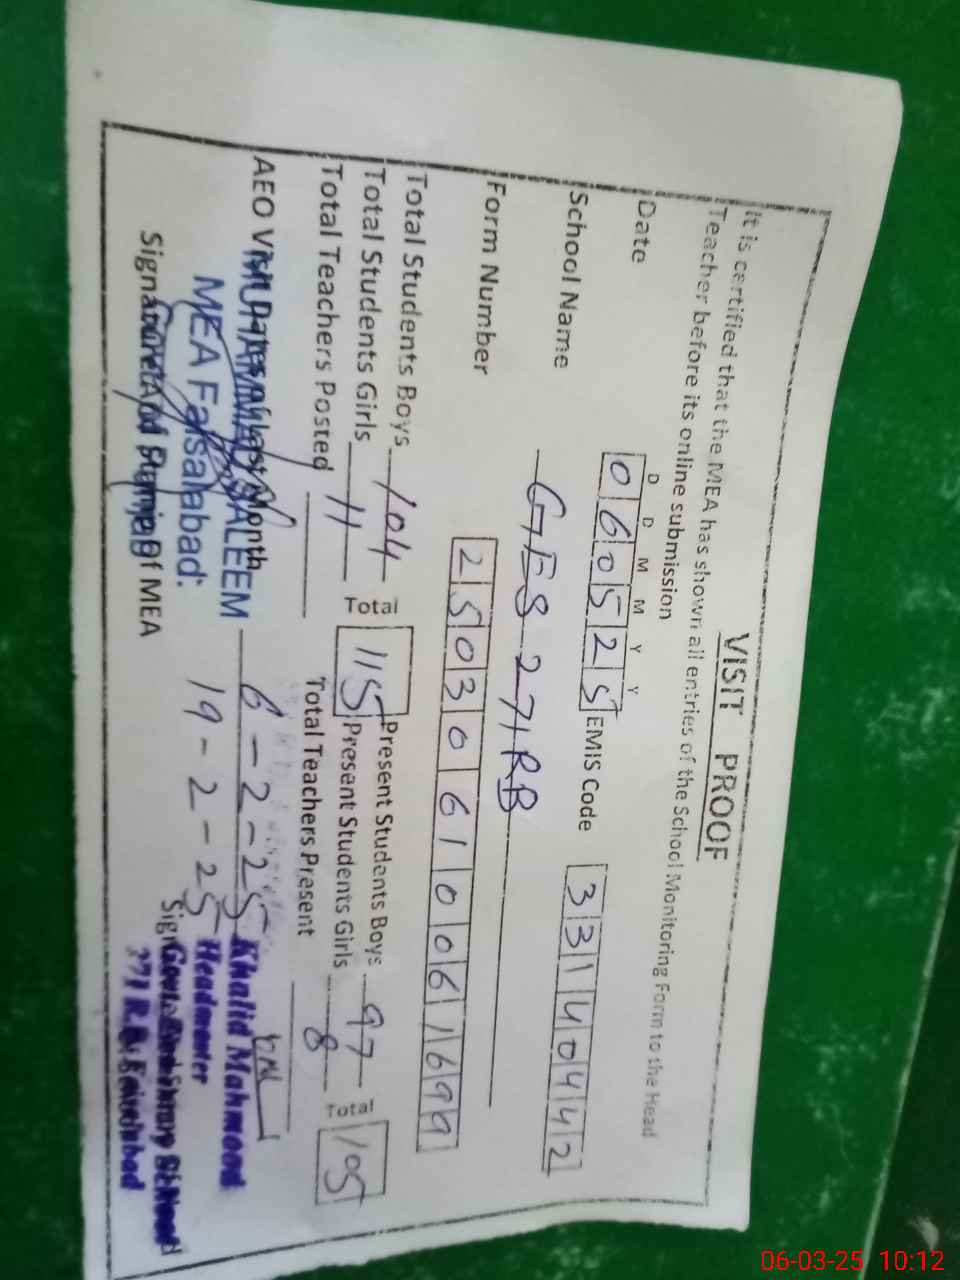 VISIT PROOF
It is certified that the MEA has shown all entries of the School Monitoring Form to the Head
Teacher before its online submission
D D M M Y Y
Date 060525 EMIS Code 33140442
School Name GES 271RB
Form Number 25030610061699
Total Students Boys 104 Total 115 Present Students Boys 97 Total 105
Total Students Girls 11 Present Students Girls 8
Total Teachers Posted Total Teachers Present
AEO Visit Dates of Last Month 6-2-25
19-2-25
MUHAMMAD SALEEM
MEA Faisalabad.
Signature And Stamp Of MEA
Khalid Mahmood
Headmaster
271 R.B. Faisalabad
06-03-25 10:12